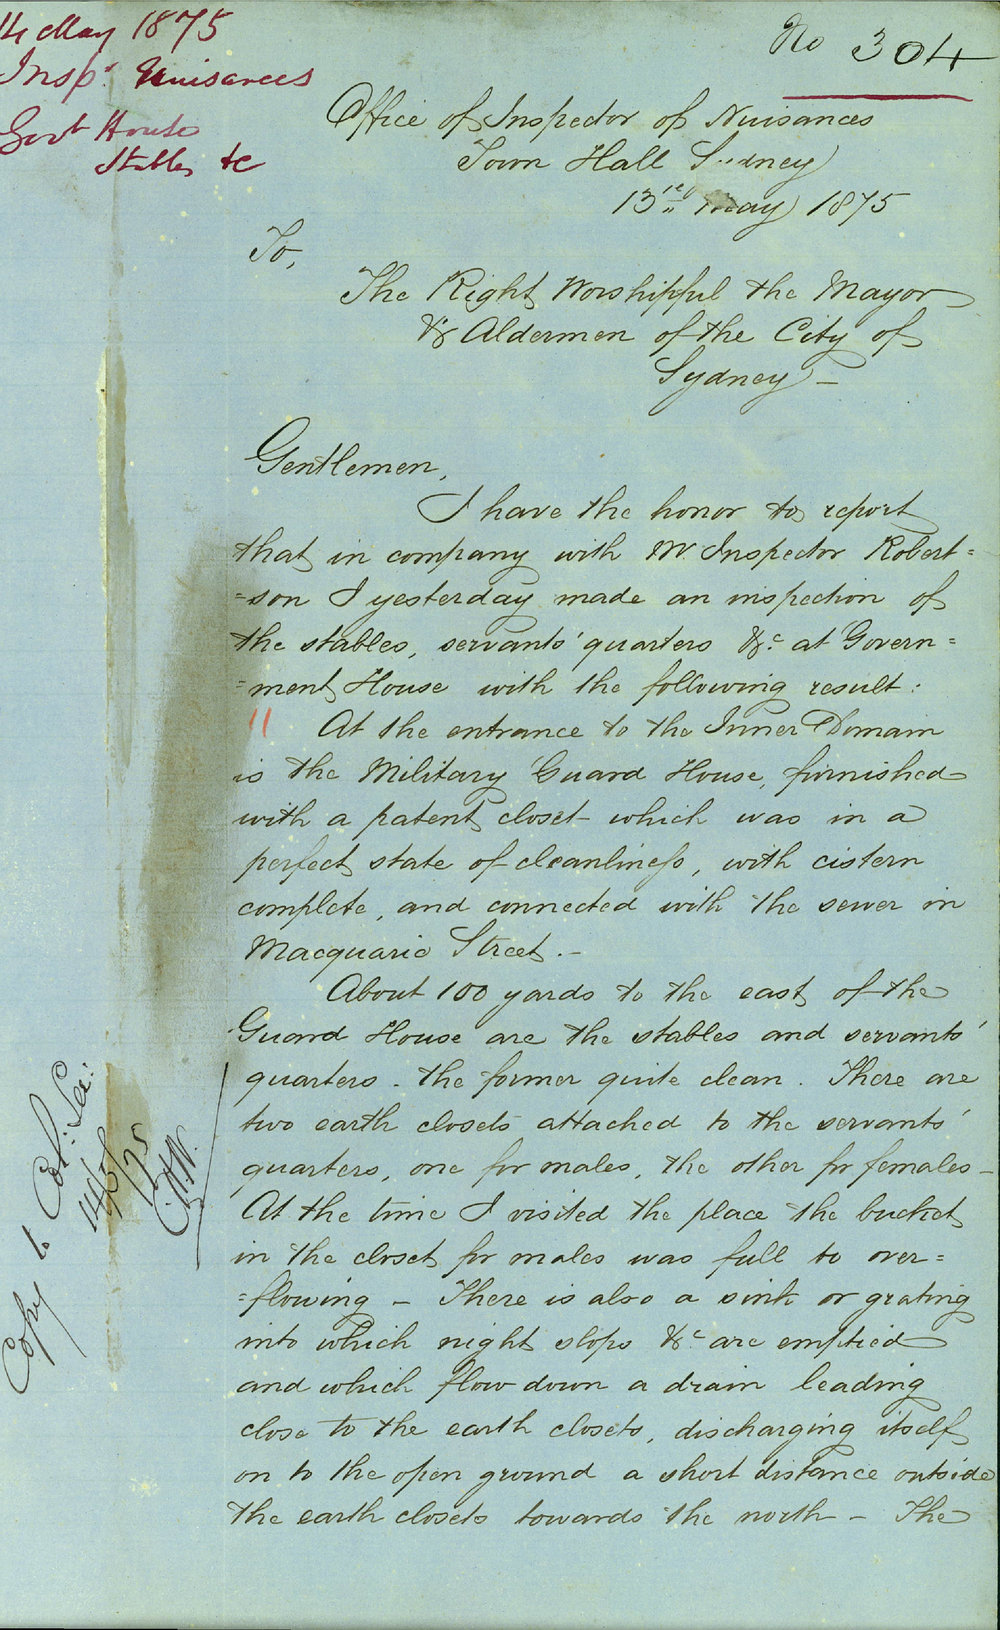 14 May 1875
Insp. Nuisances
Govt House
Stables &c
No 304
Office of Inspector of Nuisances
Town Hall Sydney
13th May 1875
To,
The Right Worshipful the Mayor
& Aldermen of the City of
Sydney –
Gentlemen,
I have the honor to report
that in company with Mr Inspector Robert=
=son I yesterday made an inspection of
the stables, servants' quarters &c at Govern=
=ment House with the following result:
At the entrance to the Inner Domain
is the Military Guard House, furnished
with a patent closet which was in a
perfect state of cleanliness, with cistern
complete, and connected with the sewer in
Macquarie Street. –
About 100 yards to the east of the
Guard House are the stables and servants'
quarters - the former quite clean. There are
two earth closets attached to the servants'
quarters, one for males, the other for females –
At the time I visited the place the bucket
in the closet for males was full to over=
=flowing – There is also a sink or grating
into which night slops &c are emptied
and which flow down a drain leading
close to the earth closets, discharging itself
on to the open ground a short distance outside
the earth closets towards the north – The
Copy to Col: Sec:
14/5/75